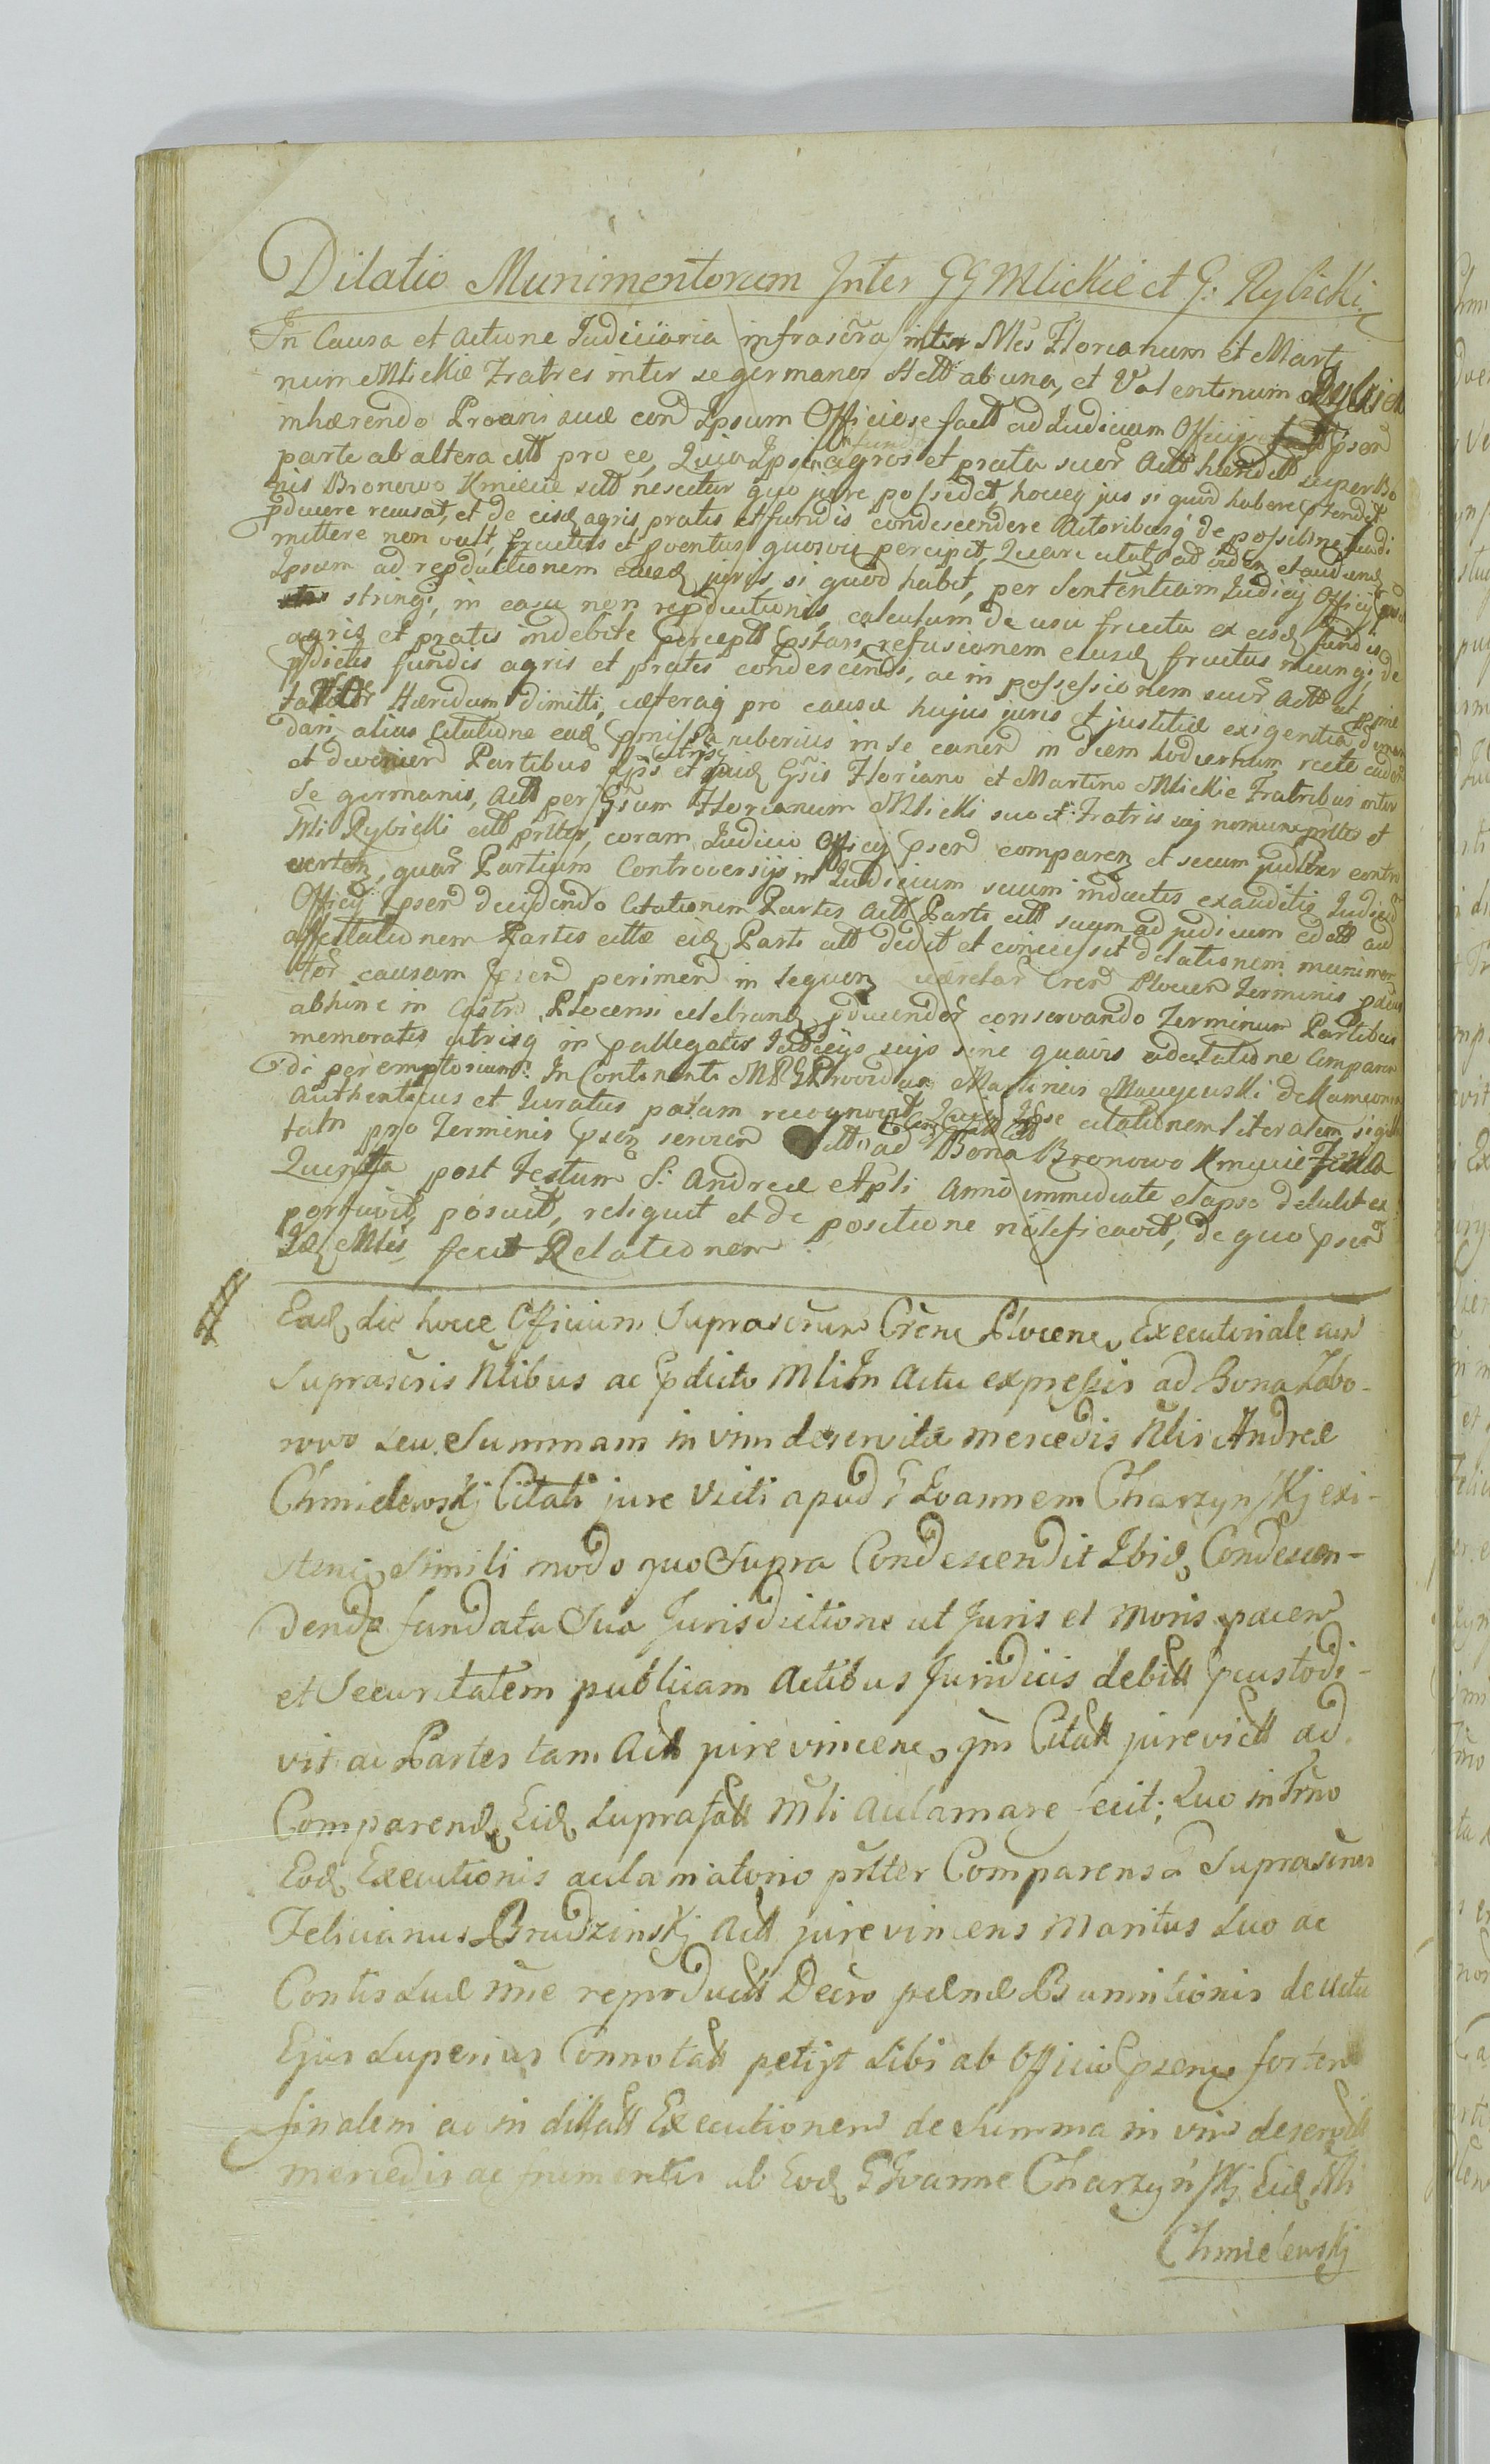 Dilatio Munimentorum Inter GG Mlickie et G. Rybicki
In Causa et Actione Judiciaria infrascra inter Nles Florianum et Marti
num Mlickie Fratres inter se germanos Actt ab una, et Valentinum Rybicki
inhærendo Procani suæ cond Ipsum Officiose factt ad Judicium Officij psen
parte ab altera citt pro eo, Quia Ipse agros et prata suor Actt hæredtt super Bo
nis Bronowo Kmiecie sitt nescitur quo jure possedet, hocq jus si quod habere ptendit
pducere recusat, et de eisd agris, pratis et fundis condescendere Actoribusq de possesne fundi
mittere non vult, fructus et pventus quosvis percipit, Quare citat ad viden et audiend
Ipsum ad repductionem ejusd juris, si quod habet, per Sententiam Judicij Officij
stringi, in casu non repductionis, calculum de usu fructu ex eisd fundis
agris et pratis indebite perceptt pstari, refusionem ejusd fructus injungi, de
pdictis fundis agris et pratis condescendi, ac in possessionem suor Actt ut
Hæredum dimitti, cæteraq pro causæ hujus juris et justitiæ exigentia, deman
dari, alias Citatione ead pmissa uberius in se conen in diem hodiernum recte caden
et devenien Partibus utrisq Ipsis et quid Gsis Floriano et Martino Mlickie Fratribus inter
se germanis, Actt per Gsum Florianum Mlicki suo et Fratris sui nomine prltes et
Nli Rybicki citt prltter, coram Judicio Officij psen comparen et secum juditer contro
verten, quar Partium Controversijs in Judicium suum inductis exauditis Judicium
Officij Ipsen decidendo Citationem Partis Actt Parti citt suam ad judicium edatt ad
affectationem Partis cittæ eid Parti citt dedit et concessit dilationem munimen
tor causam psen perimen in sequen querelar Cren Plocen Terminis pxime
abhinc in Castro Plocensi celebrand pducendor conservando Terminum Partibus
memoratis utrisq in pallegatis Judicijs suis sine quavis adcitatione Comparen
di peremptorium. In Continenti M R G Providus Martinus Macyewski de Kamionn
Authenticus et Juratus palam recognovit Quia Ipse citationem literalem sigil
latn pro Terminis psen servien citt ad Bona Bronowo Kmiecie Feria
Quinta post Festum S. Andreæ Apli Anno immediate elapso detulit ex
portavit, posuit, reliquit et de positione notificavit, de quo psen
Id Mlis fecit Relationem
Ead die hocce Officium Suprascrum Crene Plocene Executoriale cum
Suprascris Nlibus ac pdicto Mli In Actu expressis ad Bona Zabo-
rowo seu Summam in vim deservitæ mercedis Nlis Andreæ
Chmielewskj Citati jure Victi apud G Ioannem Charzynskj exi-
stene simili modo quo Supra Condescendit Ibid Condescen-
dendo fundata Sua Jurisdictione ut Juris et moris pacem
et Securitatem publicam Actibus Juridicis debitt pcustodi-
vit ac Partes tam Actt jurevincene, qm Citatt jurevictt ad
Comparend Eid Suprafatt Mli Aclamare fecit; Quo in Trno
Eod Executionis aclamatorio prltter Comparens G Suprascrus
Felicianus Brudzinskj Actt jurevincens Maritus Suo ac
Contis Suæ nne reproductt Decro pænæ Bannitionis de actu
Ejus Superius Connotatt petijt Sibi ab Officio psene fortem
finalem ac in dillatt Executionem de Summa in vim deservitt
mercedis ac frumentis ab Eod G Ioanne Charzynskj Eid Nli
Chmielewskj